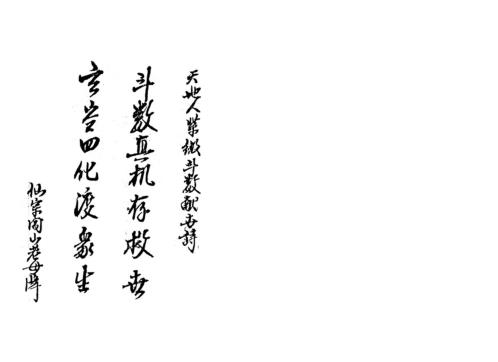 天地人紫微斗数献世詩
斗数真机存救世
玄岩四化渡衆生
仙宗闾山老母降